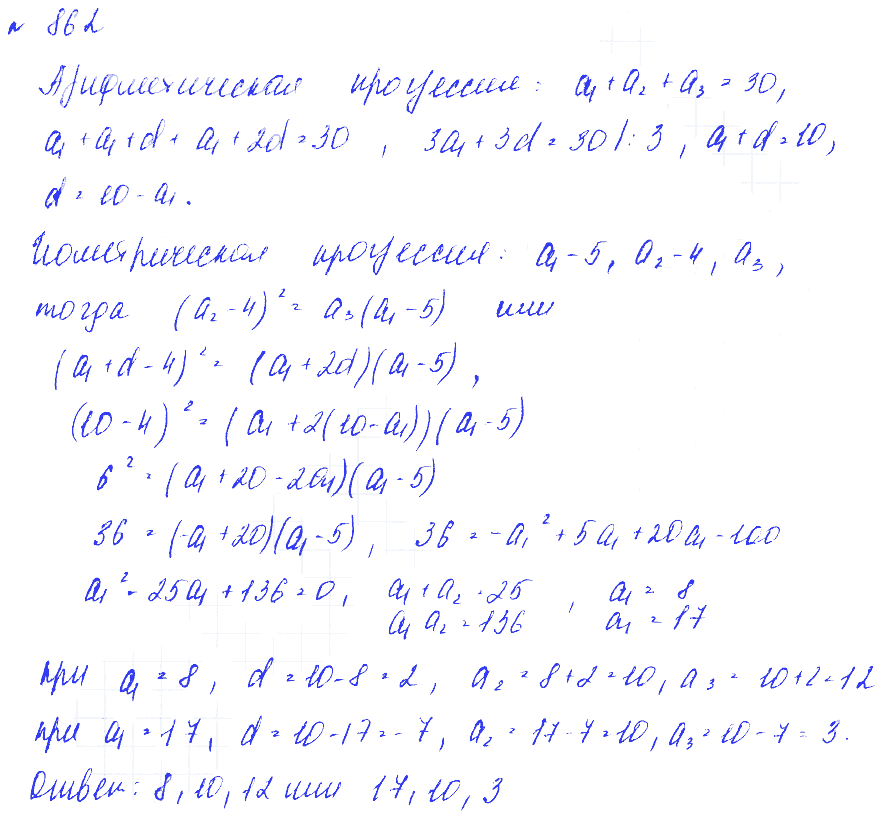 № 862
Арифметическая прогрессия: a₁ + a₂ + a₃ = 30,
a₁ + a₁ + d + a₁ + 2d = 30 , 3a₁ + 3d = 30 /: 3 , a₁ + d = 10,
d = 10 - a₁.
Геометрическая прогрессия: a₁ - 5, a₂ - 4, a₃,
тогда (a₂ - 4)² = a₃(a₁ - 5) или
(a₁ + d - 4)² = (a₁ + 2d)(a₁ - 5),
(10 - 4)² = (a₁ + 2(10 - a₁))(a₁ - 5)
6² = (a₁ + 20 - 2a₁)(a₁ - 5)
36 = (-a₁ + 20)(a₁ - 5), 36 = -a₁² + 5a₁ + 20a₁ - 100
a₁² - 25a₁ + 136 = 0, a₁ + a₂ = 25 , a₁ = 8
a₁ a₂ = 136 a₁ = 17
при a₁ = 8, d = 10 - 8 = 2, a₂ = 8 + 2 = 10, a₃ = 10 + 2 = 12
при a₁ = 17, d = 10 - 17 = -7, a₂ = 17 - 7 = 10, a₃ = 10 - 7 = 3.
Ответ: 8, 10, 12 или 17, 10, 3